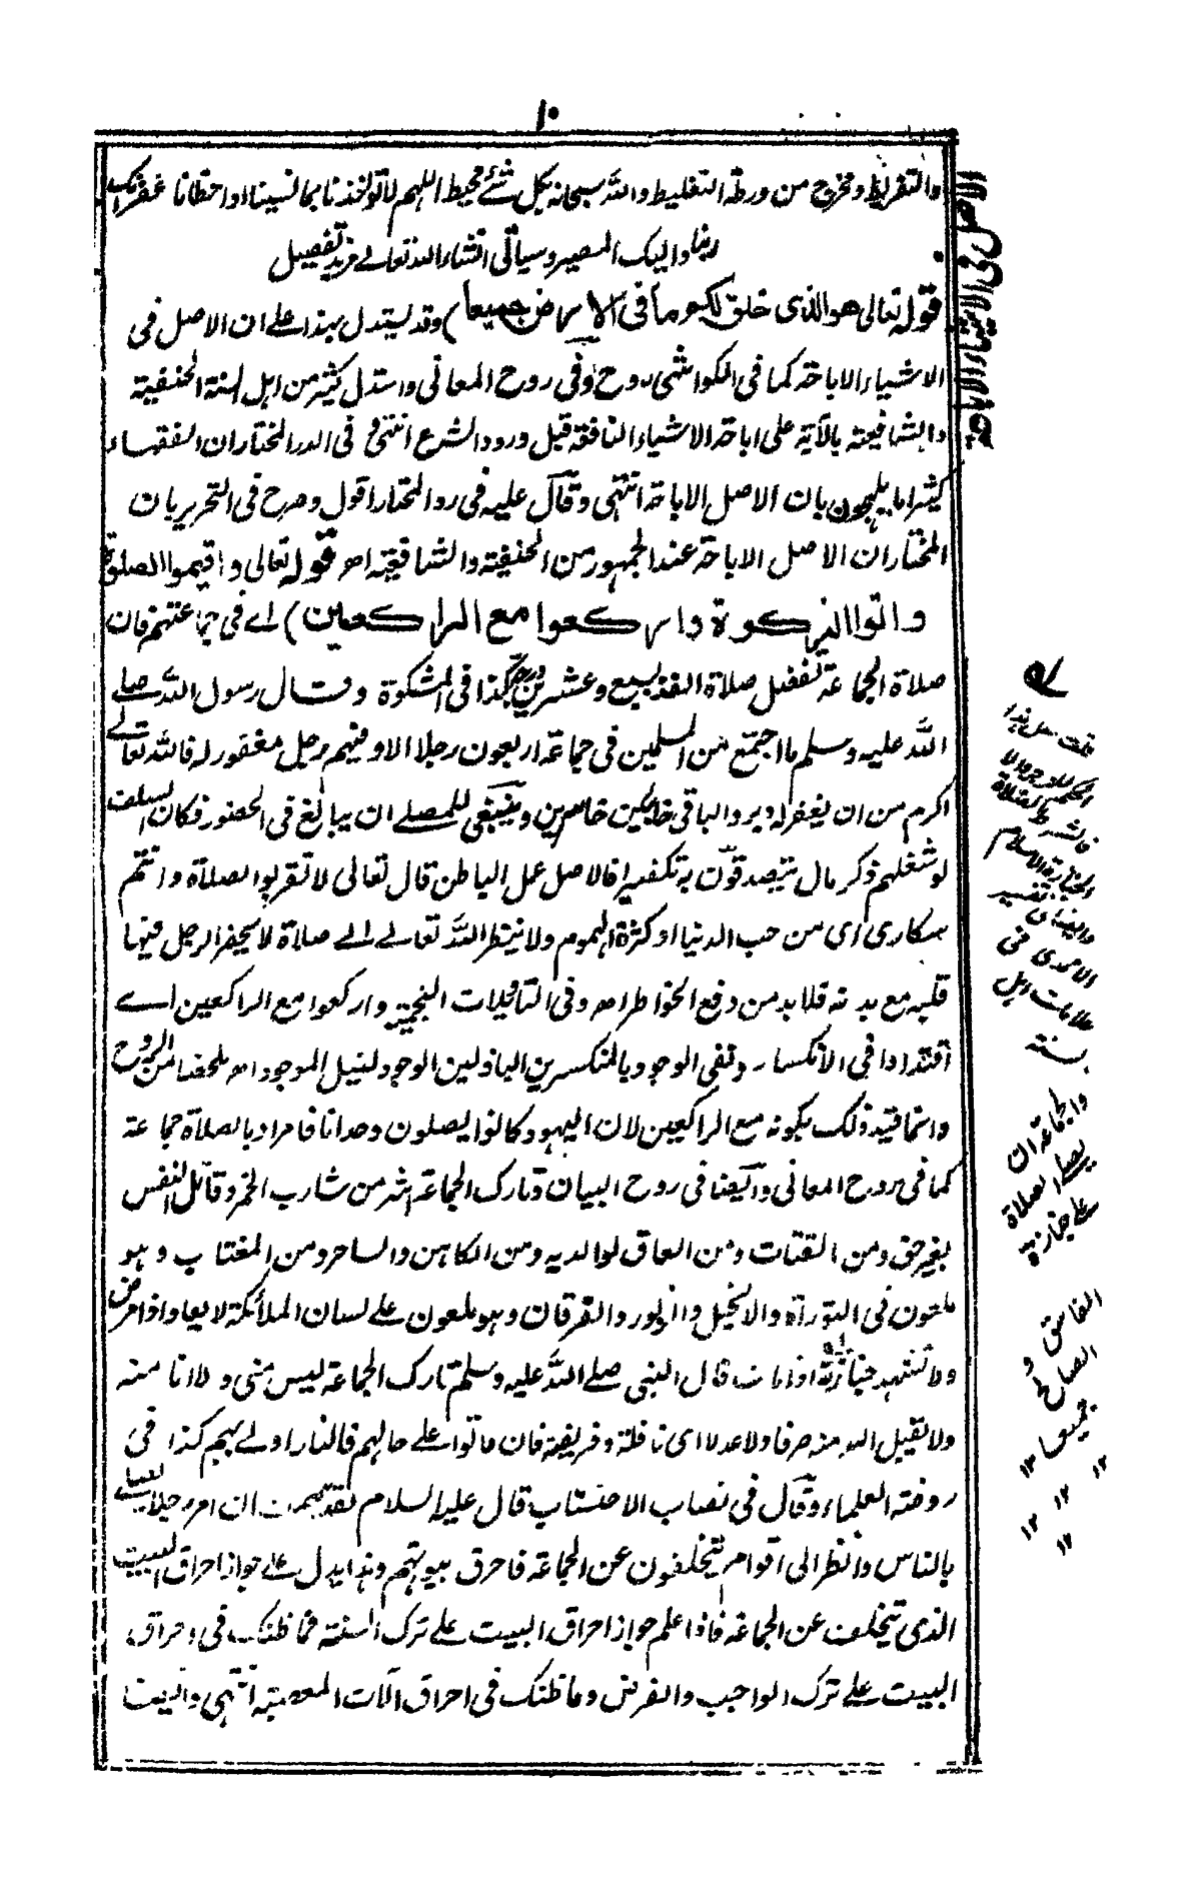 ١٠
والتفريط ومخرج من ورطة التغليط والله سبحانه بكل شئ محيط اللهم لاتؤاخذنا بما نسينا او اخطانا غفرانك
ربنا واليك المصير وسياتى انشاء الله تعالے مزيد تفصيل
قوله تعالى هو الذى خلق لكم ما فى الارض جميعا) وقد يستدل بهذا على ان الاصل فى
الاشياء الاباحة كما فى الكواشى روح وفى روح المعانى واستدل كثير من اهل السنة الحنفية
والشافعية بالآية على اباحة الاشياء النافعة قبل ورود الشرع انتهى و فى الدر المختار ان الفقهاء
كثيرا ما يلهجون بان الاصل الاباحة انتهى وقال عليه فى رد المحتار اقول وصرح فى التحرير بان
المختار ان الاصل الاباحة عند الجمهور من الحنفية والشافعية اھ قوله تعالى واقيموا الصلوة
واتوا الزكوة واركعوا مع الراكعين) اے فى جماعتهم فان
صلاة الجماعة تفضل صلاة الفذ بسبع وعشرين درجة كذا فى المشكوة وقال رسول الله صلے
الله عليه وسلم ما اجتمع من المسلمين فى جماعة اربعون رجلا الا وفيهم رجل مغفور له فالله تعالے
اكرم من ان يغفر له ويرد الباقى خائبين خاسرين وينبغى للمصلے ان يبالغ فى الحضور فكان السلف
لو شغلهم ذكر مال يتصدقون به تكفيرا فالاصل عمل الباطن قال تعالى لا تقربوا الصلاة وانتم
سكارى اى من حب الدنيا او كثرة الهموم ولا ينظر الله تعالے الے صلاة لا يحضر الرجل فيها
قلبه مع بدنه فلا بد من دفع الخواطر اھ وفى التاويلات النجمية واركعوا مع الراكعين اے
اقتدوا فى الانكسار ونفى الوجود بالمنكسرين الباذلين الوجود لنيل الموجود اھ ملخصا من الروح
وانما قيد ذلك بكونه مع الراكعين لان اليهود كانوا يصلون وحدانا فامروا بالصلاة جماعة
كما فى روح المعانى وايضا فى روح البيان وتارك الجماعة اشر من شارب الخمر وقاتل النفس
بغير حق ومن القتات ومن العاق لوالديه ومن الكاهن والساحر ومن المغتاب وهو
ملعون فى التوراة والانجيل والزبور والفرقان وهو ملعون علے لسان الملائكة لا يعاد اذا مرض
ولا تشهد جنازته اذا مات قال النبى صلے الله عليه وسلم تارك الجماعة ليس منى ولا انا منه
ولا يقبل الله منه صرفا ولا عدلا اى نافلة وفريضة فان ماتوا علے حالهم فالنار اولے بهم كذا فى
روضة العلماء وقال فى نصاب الاحتساب قال عليه السلام لقد هممت ان امر رجلا يصلے
بالناس وانظر الى اقوام يتخلفون عن الجماعة فاحرق بيوتهم وهذا يدل علے جواز احراق البيت
الذى يتخلف عن الجماعة فاذا علم جواز احراق البيت علے ترك السنة فما ظنك فى احراق
البيت علے ترك الواجب والفرض وما ظنك فى احراق آلات المعصية انتهى وايضا
الاصل فى الاشياء الاباحة
والجماعة ان
يصلے الصلاة
علے جنازة
الفاسق و
الصالح
جميعا ١٢
١٢
١٢
١٢
١٢